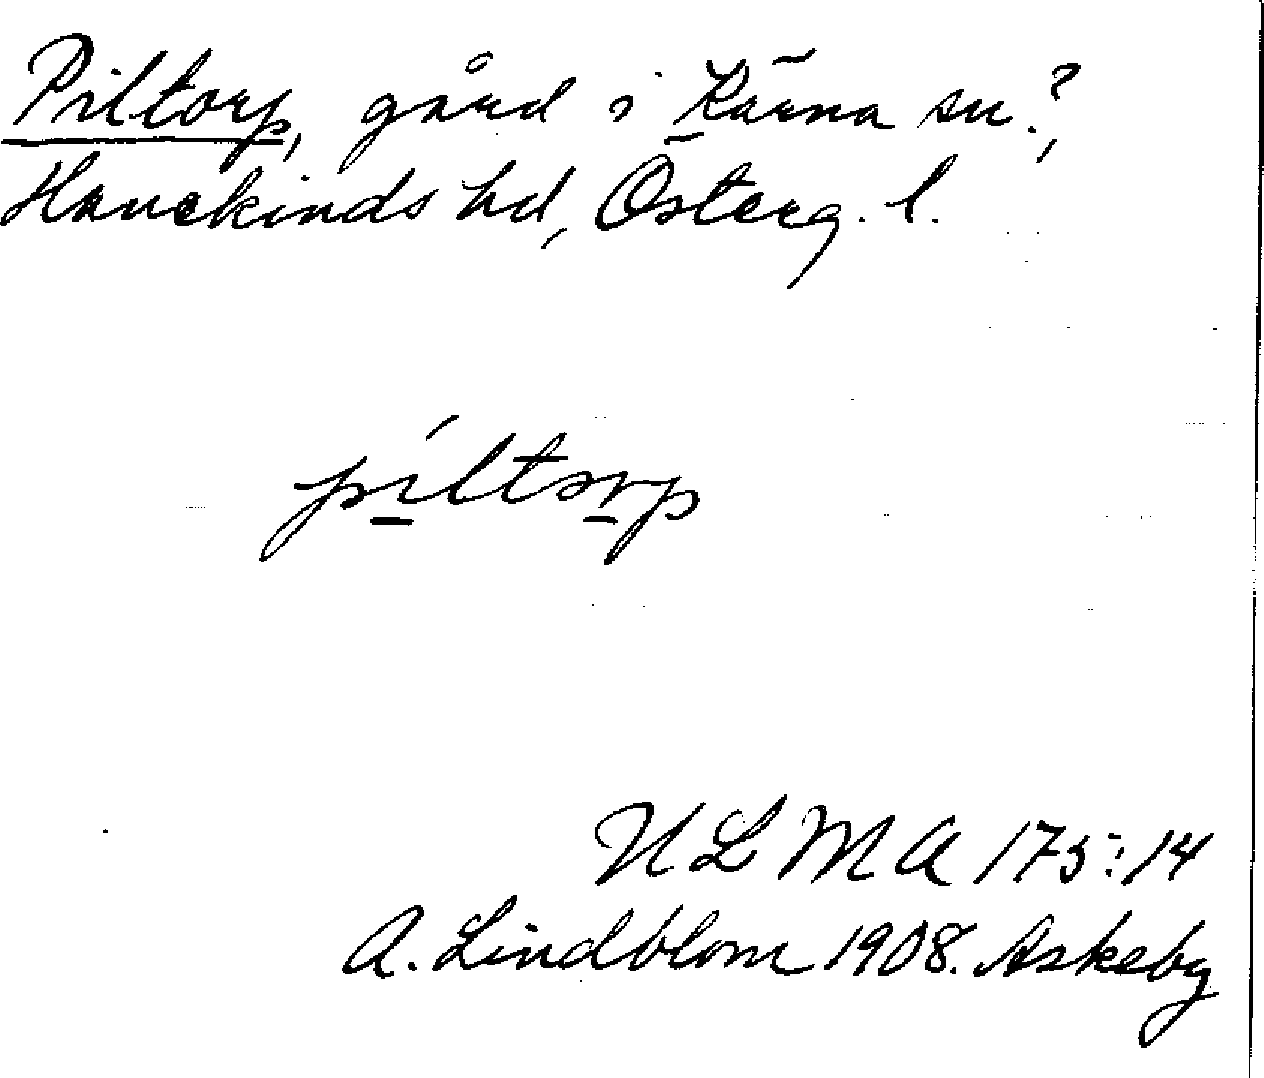 Piltorp, gård i Kärna sn.?,
Hanekinds hd, Österg. l.
píltorp
ULMA 175:14
A. Lindblom 1908. Askeby